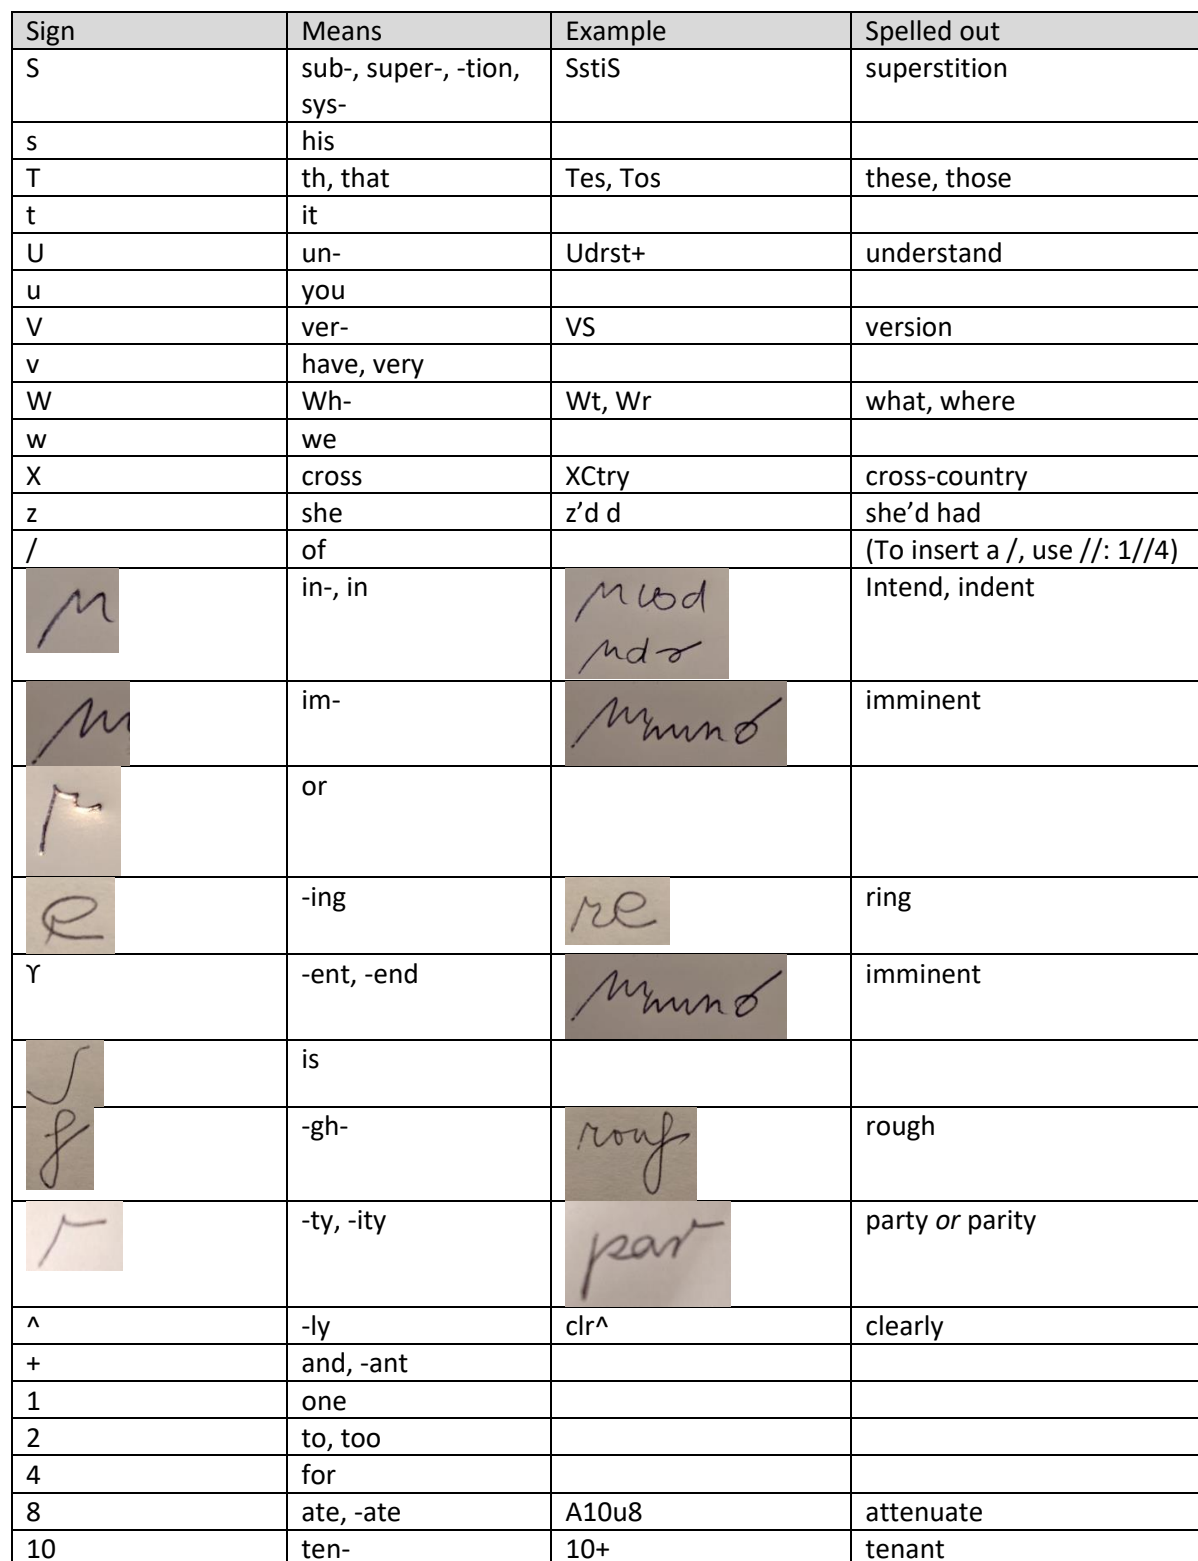 Sign Means Example Spelled out
S sub-, super-, -tion, SstiS superstition
sys-
s his
T th, that Tes, Tos these, those
t it
U un- Udrst+ understand
u you
V ver- VS version
v have, very
W Wh- Wt, Wr what, where
w we
X cross XCtry cross-country
z she z’d d she’d had
/ of (To insert a /, use //: 1//4)
in-, in Intend, indent
im- imminent
or
-ing ring
ϒ -ent, -end imminent
is
-gh- rough
-ty, -ity par party or parity
^ -ly clr^ clearly
+ and, -ant
1 one
2 to, too
4 for
8 ate, -ate A10u8 attenuate
10 ten- 10+ tenant